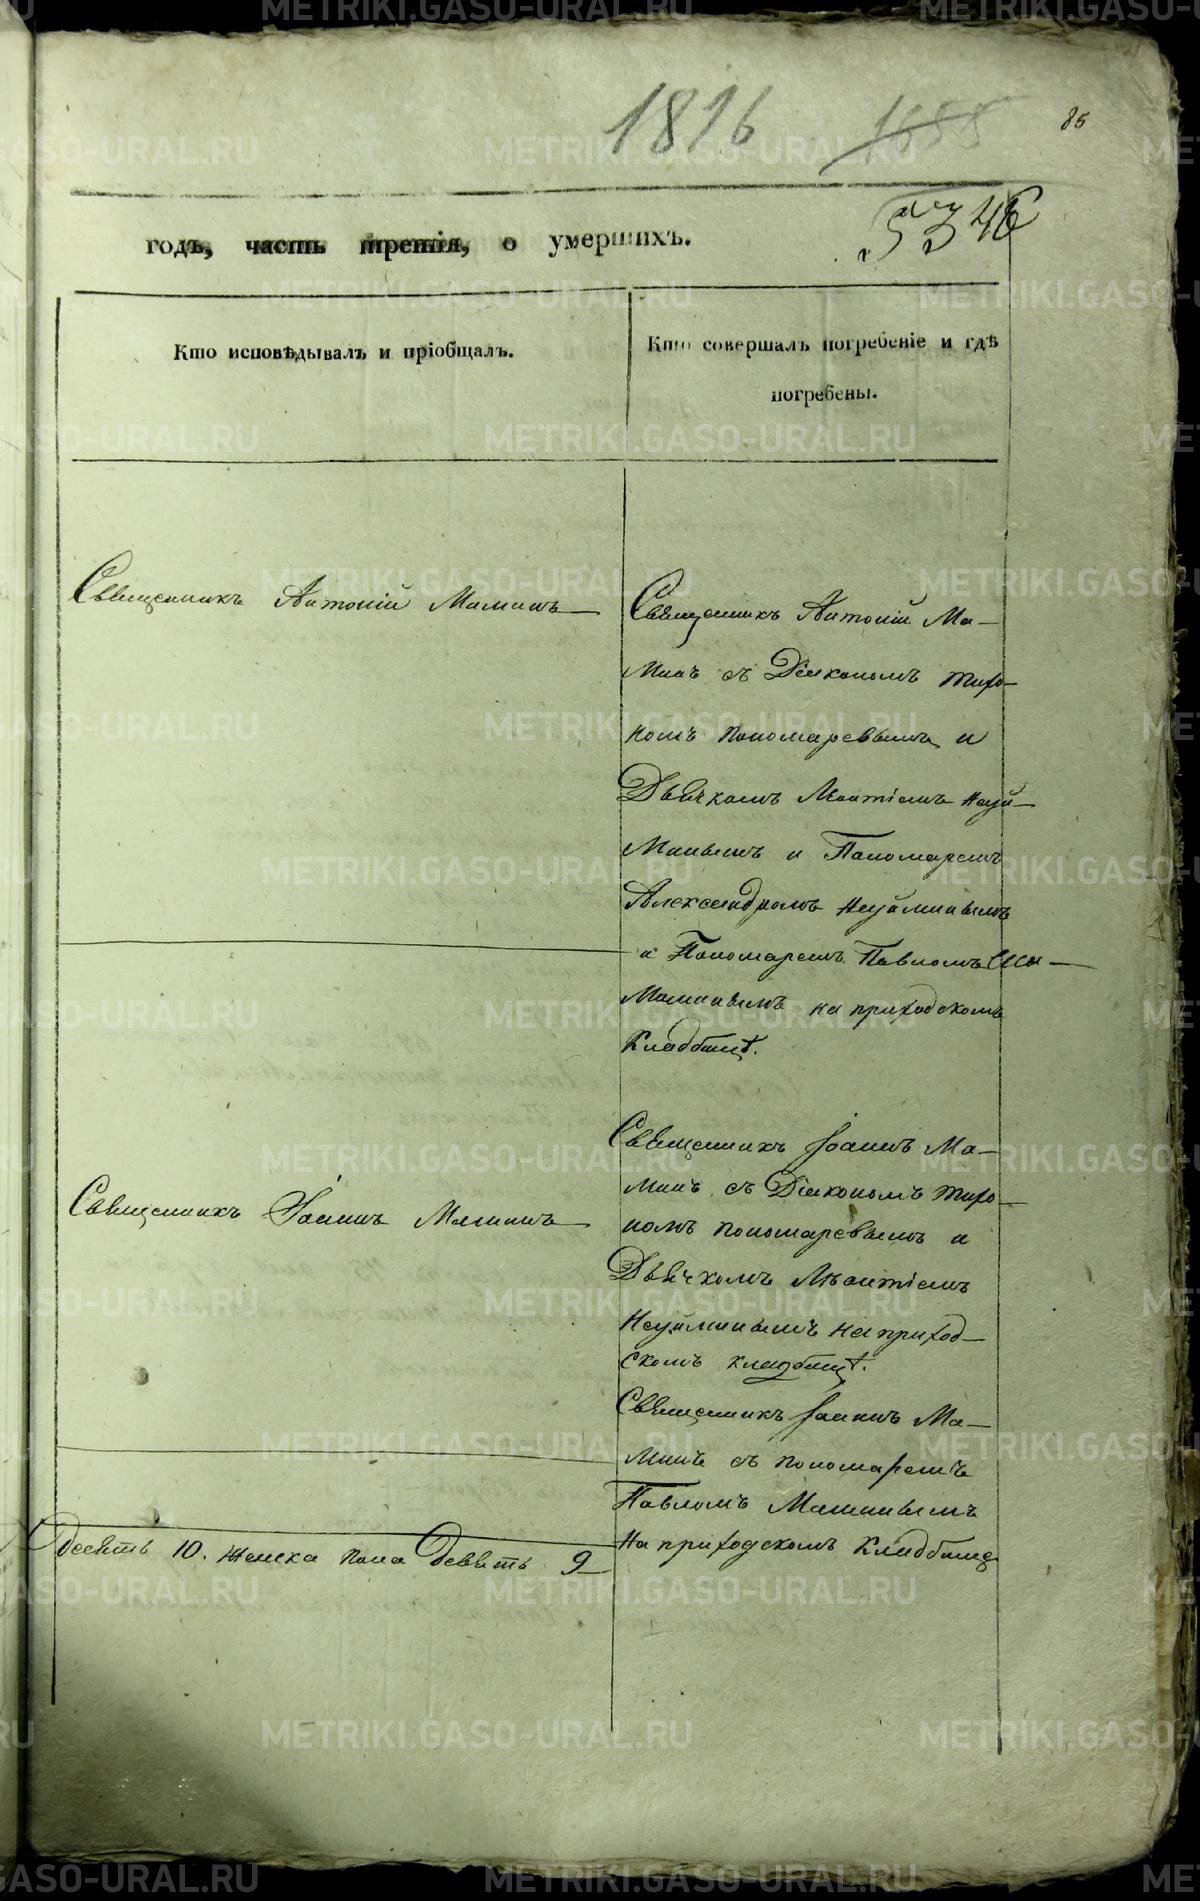 1816 1655
85
5346
годъ, часть третія, о умершихъ.
Кто исповѣдывалъ и пріобщалъ.
Кто совершалъ погребеніе и гдѣ
погребены.
Священникъ Антоній Маминъ
Священникъ Антоній Ма-
минъ съ Діакономъ Миро-
номъ Пономаревымъ и
Дьячкомъ Леонтіемъ Неуй-
минымъ и Пономаремъ
Александромъ Неуйминымъ
и Пономаремъ Павломъ
Маминымъ на приходскомъ
Кладбищѣ.
Священникъ Іоаннъ Ма-
минъ съ Діакономъ Миро-
номъ Пономаревымъ и
Дьячкомъ Леонтіемъ
Неуйминымъ на приход-
скомъ кладбищѣ.
Священникъ Іоаннъ Маминъ
Священникъ Іоаннъ Ма-
минъ съ пономаремъ
Павломъ Маминымъ
на приходскомъ Кладбище
Десять 10. Женска пола Девять 9
METRIKI.GASO-URAL.RU